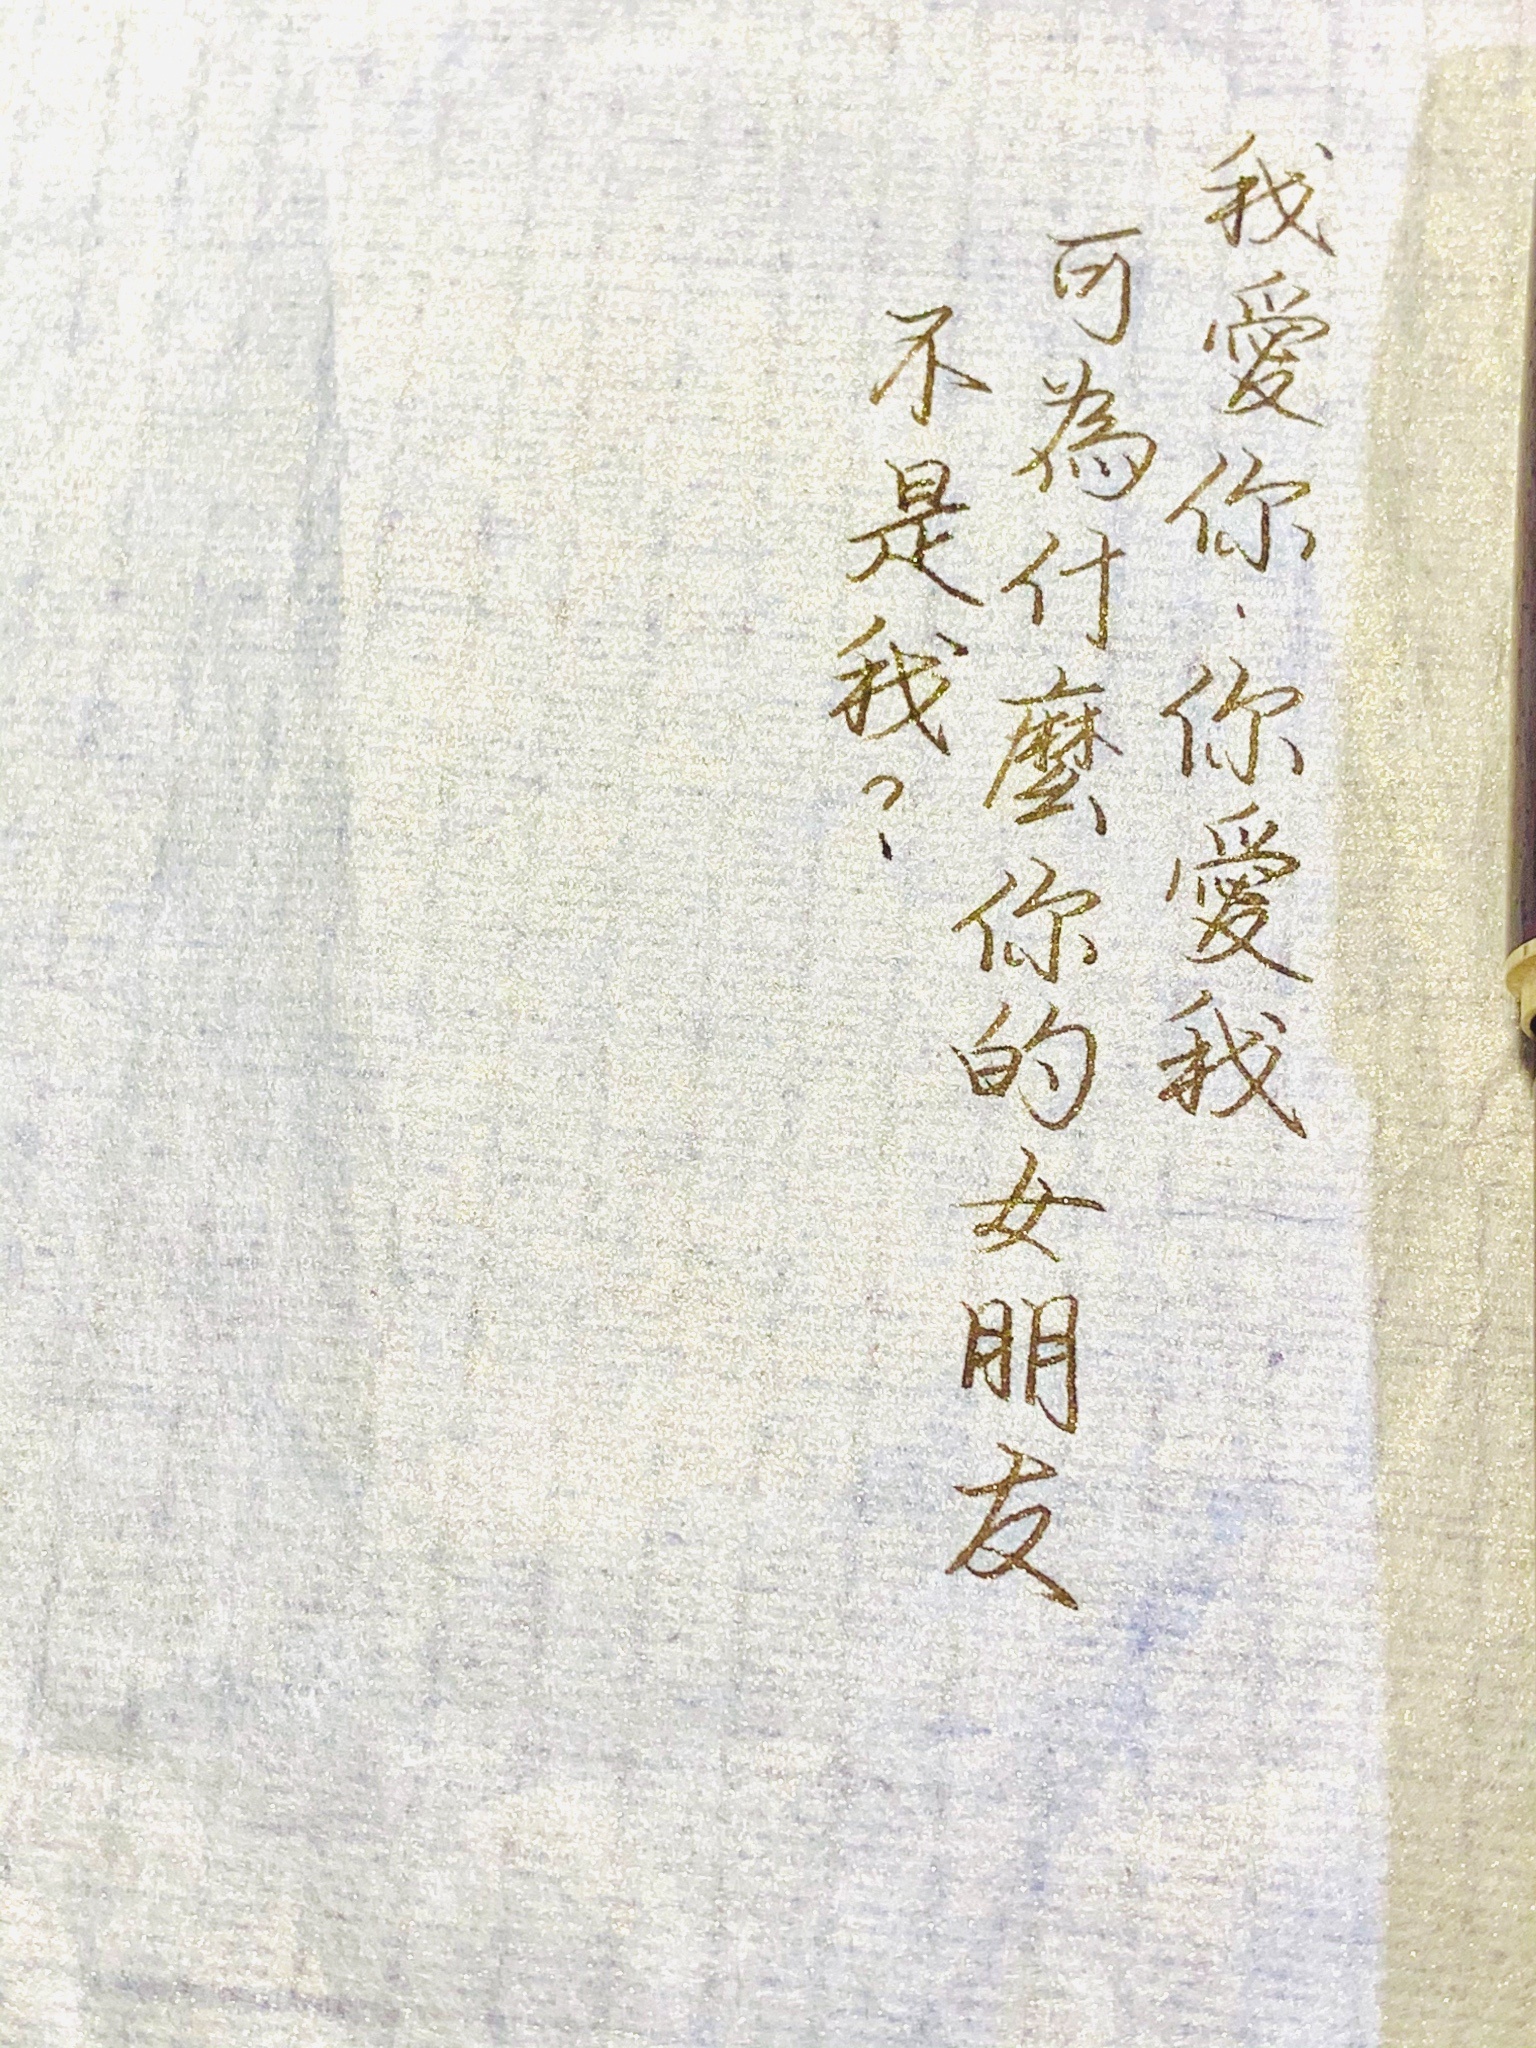 我愛你.你愛我
可為什麼你的女朋友
不是我?